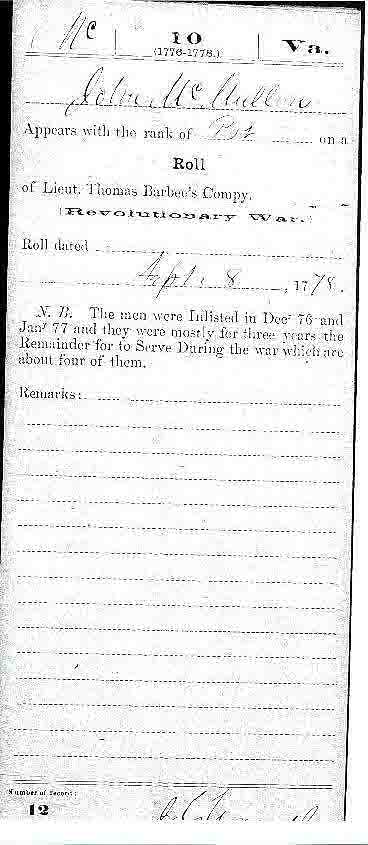 Mc | 10 | Va.
(1776-1778.)
John McMullen
Appears with the rank of Pvt on a
Roll
of Lieut. Thomas Barbee's Compy.
(Revolutionary War.)
Roll dated
Sept. 8, 1778.
N. B. The men were Inlisted in Decr 76 and
Jany 77 and they were mostly for three years the
Remainder for to Serve During the war which are
about four of them.
Remarks:
Number of record:
12